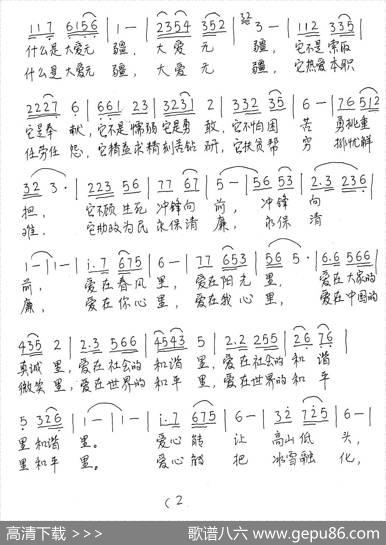 117 6156 | 1 - | 2354 352 | 3 - | 112 335 |
什么是大爱无 疆, 大 爱 无 疆, 它不是索取
什么是大爱无 疆, 大 爱 无 疆, 它热爱本职
2227 6 | 661 23 | 3231 2 | 332 35 | 6 - | 76 512 |
它是奉 献, 它不是懦弱 它是勇 敢, 它不怕困 苦 勇挑重
任劳任 怨, 它精益求精刻苦钻 研, 它扶贫帮 穷 排忧解
32 3· | 223 56 | 77 67 | 5 - | 56 53 | 2.3 236 |
担, 它不顾生死 冲锋向 前, 冲锋 向
难, 它助政为民 永保清 廉, 永保 清
1 - | 1 - | i.7 675 | 6 - | 77 653 | 56 5· | 6.6 566 |
前, 爱在春风 里, 爱在阳光 里, 爱在大家的
廉, 爱在你心 里, 爱在我心 里, 爱在中国的
435 2 | 2.3 566 | 4543 5 | 2.2 255 | 26 76 |
真诚 里, 爱在社会的 和谐 里, 爱在社会的 和 谐
微笑 里, 爱在世界的 和平 里, 爱在世界的 和 平
5 326 | 1 - | 1 - | i.7 675 | 6 - | 32 725 | 6 - |
里 和谐 里。 爱心能 让 高山低 头,
里 和平 里。 爱心能 把 冰雪融 化,
(2
高清下载 >>> 歌谱八六 www.gepu86.com